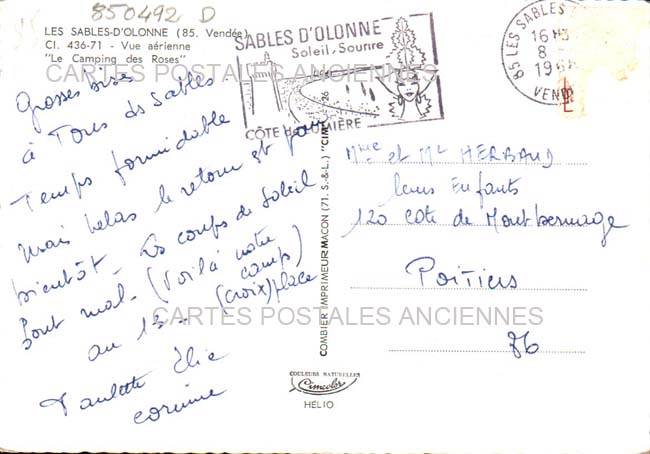 850492 D
LES SABLES-D'OLONNE (85. Vendée)
Cl. 436-71 - Vue aérienne
"Le Camping des Roses"
SABLES D'OLONNE
Soleil, Sourire
CÔTE de LUMIÈRE
85 LES SABLES
16 H
8
19
VEND
CARTES POSTALES ANCIENNES
Grosses bises
à Tous des Sables
Temps formidable
mais helas le retour est pour
bientôt. Les coups de Soleil
Sont mal. (Voilà notre
camp)
au 15 (croix) place
Paulette Elie
corinne
COMBIER IMPRIMEUR MACON (71. S.-&-L.) "CIM"
Mme et Mr HERBAUD
leurs Enfants
120 Cote de Montbernage
Poitiers
86
CARTES POSTALES ANCIENNES
COULEURS NATURELLES
Cimcolor
HÉLIO